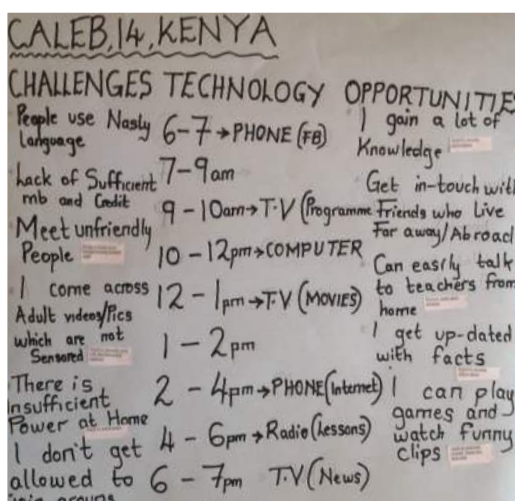 CALEB, 14, KENYA
CHALLENGES TECHNOLOGY OPPORTUNITIES
People use Nasty
Language
Lack of Sufficient
mb and Credit
Meet unfriendly
People
I come across
Adult videos/Pics
which are not
Sensored
There is
Insufficient
Power at Home
I don't get
allowed to
join groups
6-7 → PHONE (FB)
7-9am
9-10am → T.V (Programme
10-12pm → COMPUTER
12-1pm → T.V (MOVIES)
1-2pm
2-4pm → PHONE (Internet)
4-6pm → Radio (Lessons)
6-7pm T.V (News)
I gain a lot of
Knowledge
Get in-touch with
Friends who Live
Far away/Abroad
Can easily talk
to teachers from
home
I get up-dated
with facts
I can play
games and
watch funny
clips